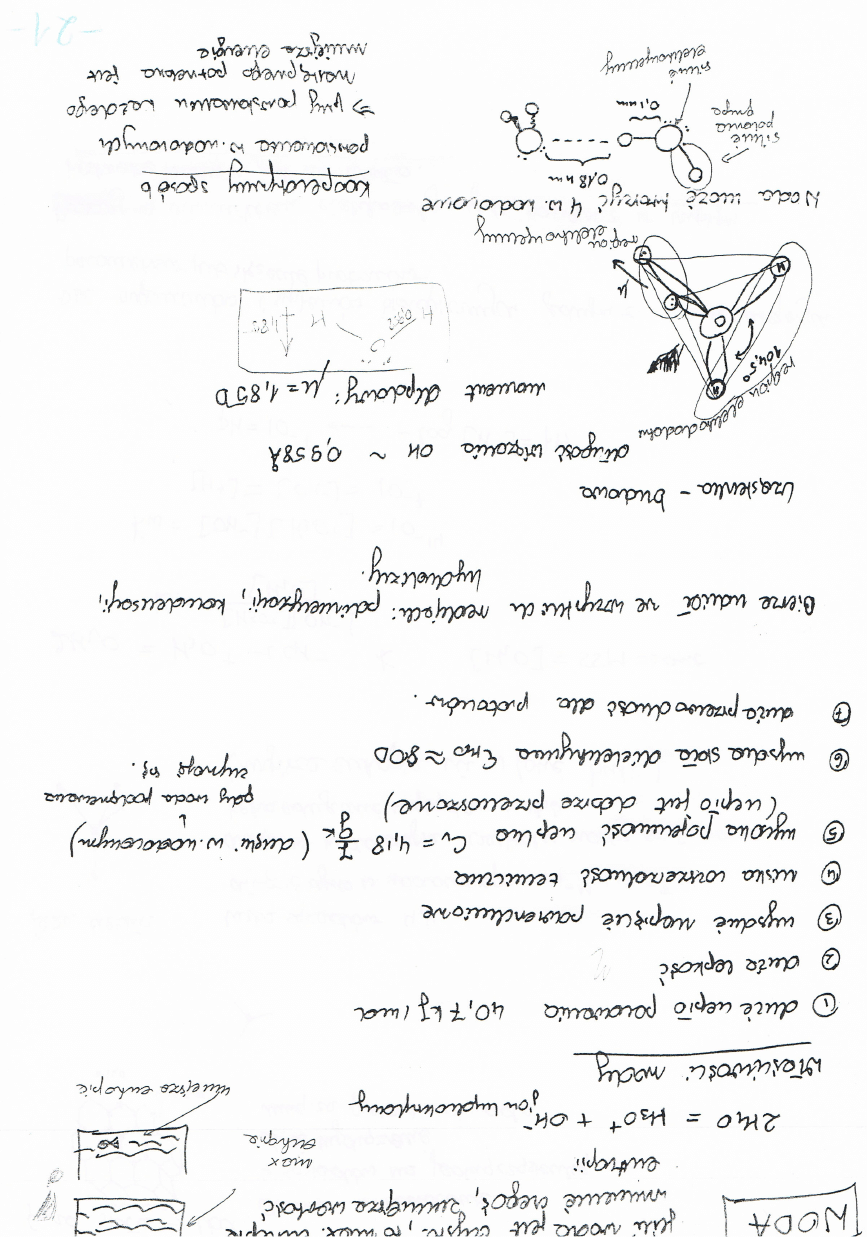 WODA
jeśli woda jest czysta, to max. entropię
wniesienie czegoś, zmniejsza wartość
entropii
max
entropia
2H₂O = H₃O⁺ + OH⁻
jon hydroksylowy
mniejsza entropia
Właściwości wody
① duże ciepło parowania 40,7 kJ/mol
② duża lepkość
③ wysokie napięcie powierzchniowe
④ niska rozszerzalność termiczna
⑤ wysoka pojemność cieplna Cᵥ = 4,18 J/gK (dzięki w. wodorowym)
(ciepło jest dobrze przenoszone)
gdy woda podgrzewana
zrywają się.
⑥ wysoka stała dielektryczna ε H₂O ≈ 80D
⑦ duże przewodność dla protonów.
Bierze udział we wszystkich reakcjach: polimeryzacji, kondensacji,
hydrolizy.
Cząsteczka - budowa
długość wiązania OH ~ 0,958Å
moment dipolowy: μ = 1,85D
H
H
1,85
region elektrododatni
104,5°
H
O
H
μ
region
elektroujemny
Woda może tworzyć 4 w. wodorowe
0,18 nm
0,1 nm
silnie
polarna
grupa
silnie
elektroujemny
kooperatywny sposób
powstawania w. wodorowych
⇒ przy powstawaniu każdego
następnego potrzebna jest
mniejsza energia
-21-